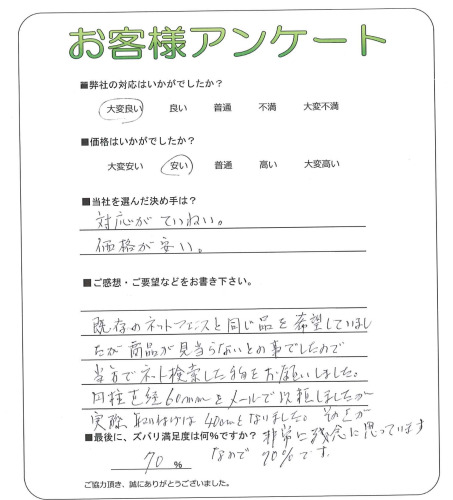 お客様アンケート
■弊社の対応はいかがでしたか？
大変良い 良い 普通 不満 大変不満
■価格はいかがでしたか？
大変安い 安い 普通 高い 大変高い
■当社を選んだ決め手は？
対応がていねい。
価格が安い。
■ご感想・ご要望などをお書き下さい。
既存のネットフェンスと同じ品を希望していまし
たが商品が見当らないとの事でしたので
当方でネット検索した物をお願いしました。
円柱直経60mmをメールで依頼しましたが
実際取り付けは40cmとなりました。それが
■最後に、ズバリ満足度は何%ですか？ 非常に残念に思っています
70 % なので 70%です。
ご協力頂き、誠にありがとうございました。